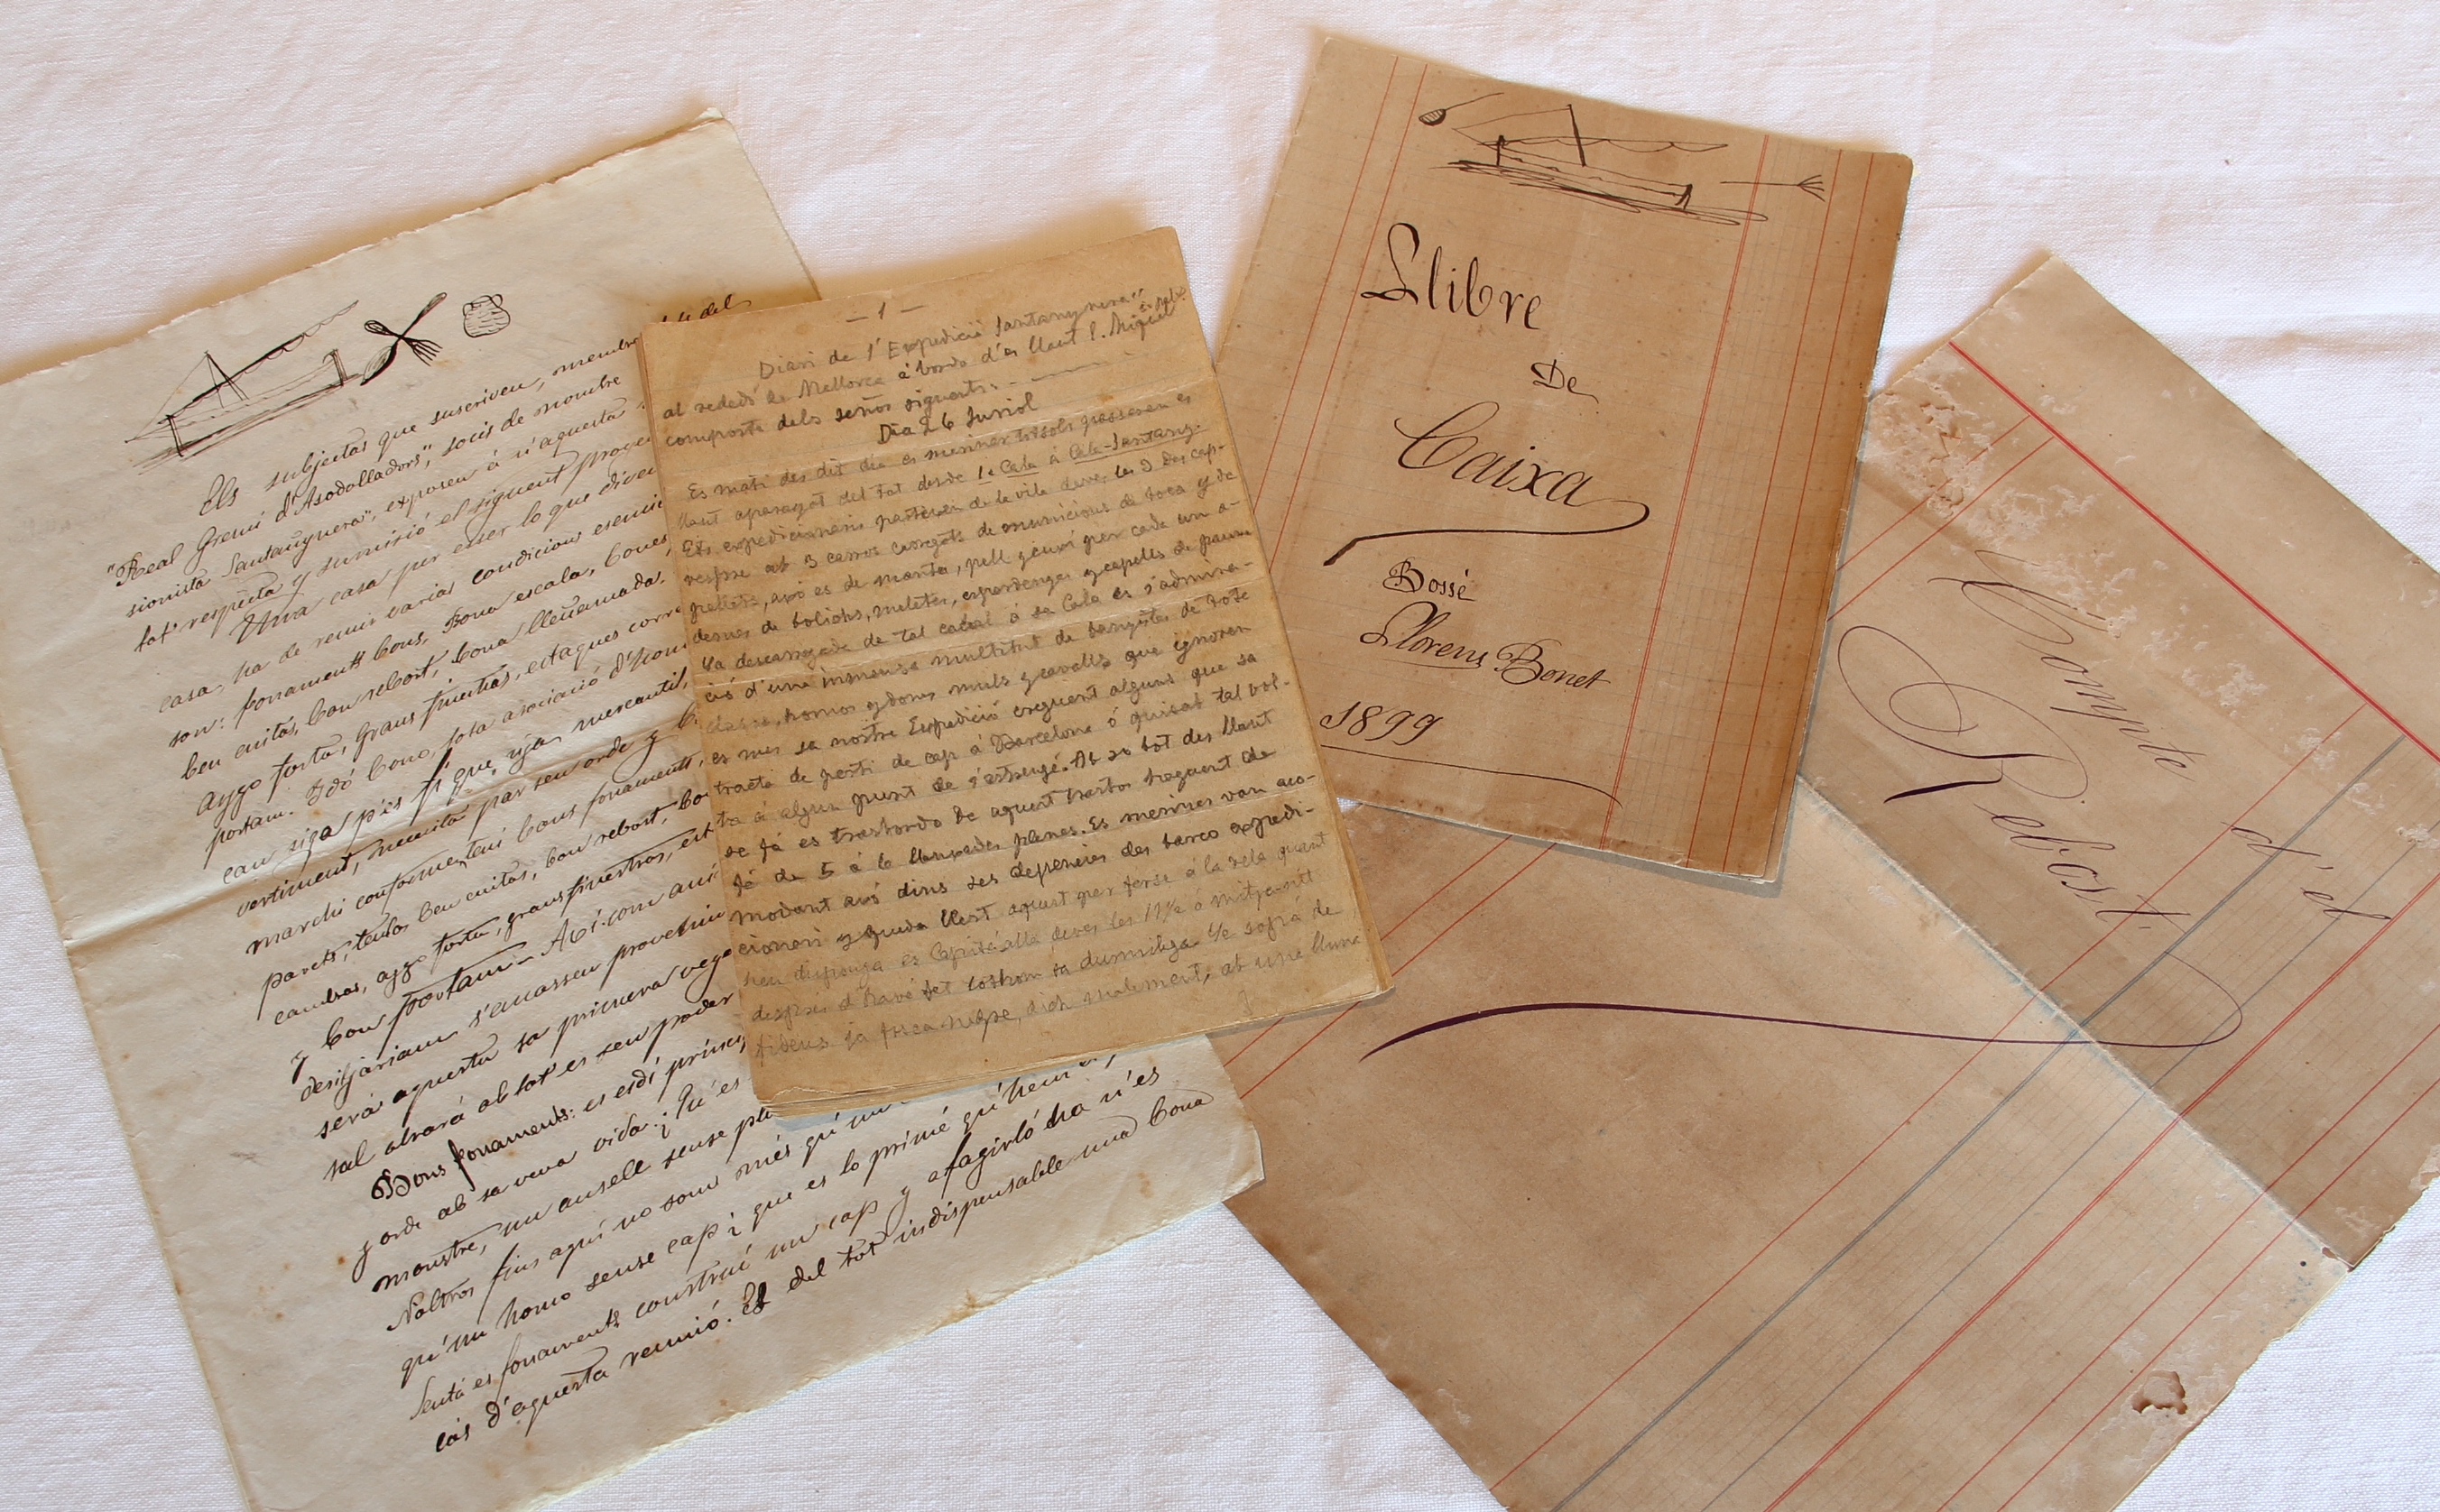 Els subjectas que suscriven, membres
"Real Gremi d'Asadolladors", socis de nombre
sionista Santanyinera", exposen á n'aquesta
tat respecta y sumisió el siguent
Una casa per esser lo que
casa, ha de reunir varias condicions
son: fonaments bons, Bona escala, bones
ben cuitas, bon rebost, bona lleñamada.
aygo forta, grans finestras, estaques
portam. Idó bono, tota asociació d'hom
can siga p'es fí que siga, mercantil,
vertiment, necesita par seu orde y
marchi conforme, tení bons fonaments,
parets, teulas ben cuitas, bon rebost,
cambras, aygo forta, grans finestras,
y bon portam. Axí com
desitjariam s'encassen
será aquesta sa primera vega
sal obrará ab tot es seu poder
Bons fonaments: es es
y orde ab sa seva vida. ¿Qu'es
monstre, un ausell sense
Noltros fins aquí no som més qu'un
qu'un homo sense cap i que es lo primé qu'hem
Sentá es fonaments construí un cap y afagirló
cás d'aquesta reunió. Es del tot indispensable una bona
— 1 —
Diari de l'Expedició Santanyinera
al rededó de Mallorca á bordo d'es llaut S. Miguel
composta dels señós siguents:
Dia 26 Juriol
Es matí des dit dia es mariners tresols passaren es
llaut aparayat del tot desde la Cala á Cala-Santany.
Ets expedicionaris partiren de la vila devers les 3 des cap-
vespre ab 3 carros carregats de municions de boca y de
pellets, axó es de manta, pell y cuxí per cada un a-
demes de bolichs, maletes, espardenyes y capells de pauma
Ya descarregada de tal cabal á sa Cala es s'admira-
ció d'una inmensa multitut de banyistas de tota
classe, homos y dones, muls y cavalls que ignoren
es mes sa nostra Expedició creguent alguns que sa
tracta de partí de cap á Barcelona ó quisat tal vol-
ta á algun punt de s'estrange. Ab so bot des llaut
se fá es trasbordo de aquest trastos haguent de
fé de 5 á 6 barcades planes. Es mariners van aco-
modant axó dins ses depencies des barco expedi-
cionari y queda llest aquest per ferse á la vela quant
heu disponga es Capitá allá devers les 11½ ó mitja-nit
despres d'havé fet tothom sa dormidega. Ye sopá de
fideus ja fosca negre, dich malament, ab una lluna
Llibre
De
Caixa
Bossé
Llorens Bonet
1899
Compte
d'el
Rebost.